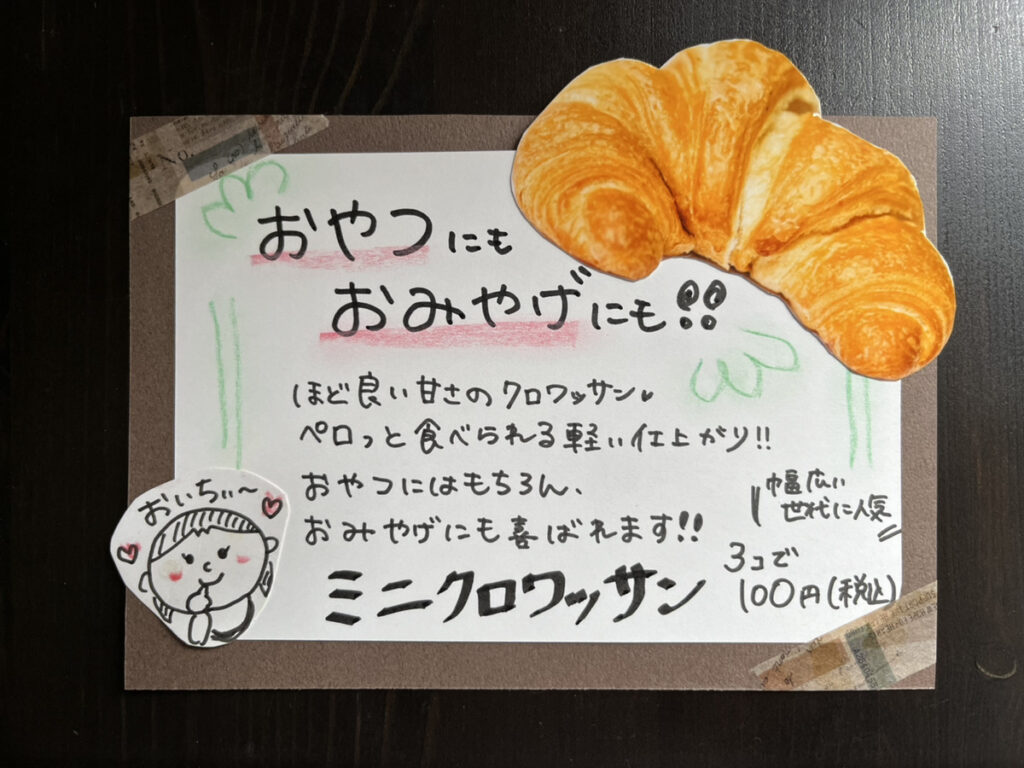 おやつにも
おみやげにも!!
ほど良い甘さのクロワッサン♥
ペロっと食べられる軽い仕上がり!!
おやつにはもちろん、
おみやげにも喜ばれます!!
幅広い
世代に人気
ミニクロワッサン
3コで
100円(税込)
おいちぃ〜